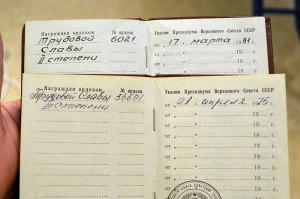 Награжден орденом № ордена
Трудовой 6021
Славы
II степени
Указом Президиума Верховного Совета СССР
17. марта 1981 г.
" 19 г.
" 19 г.
Награжден орденом № ордена
Трудовой Славы 36601
III степени
Указом Президиума Верховного Совета СССР
21 апреля 1975 г.
" 19 г.
" 19 г.
" 19 г.
" 19 г.
" 19 г.
" 19 г.